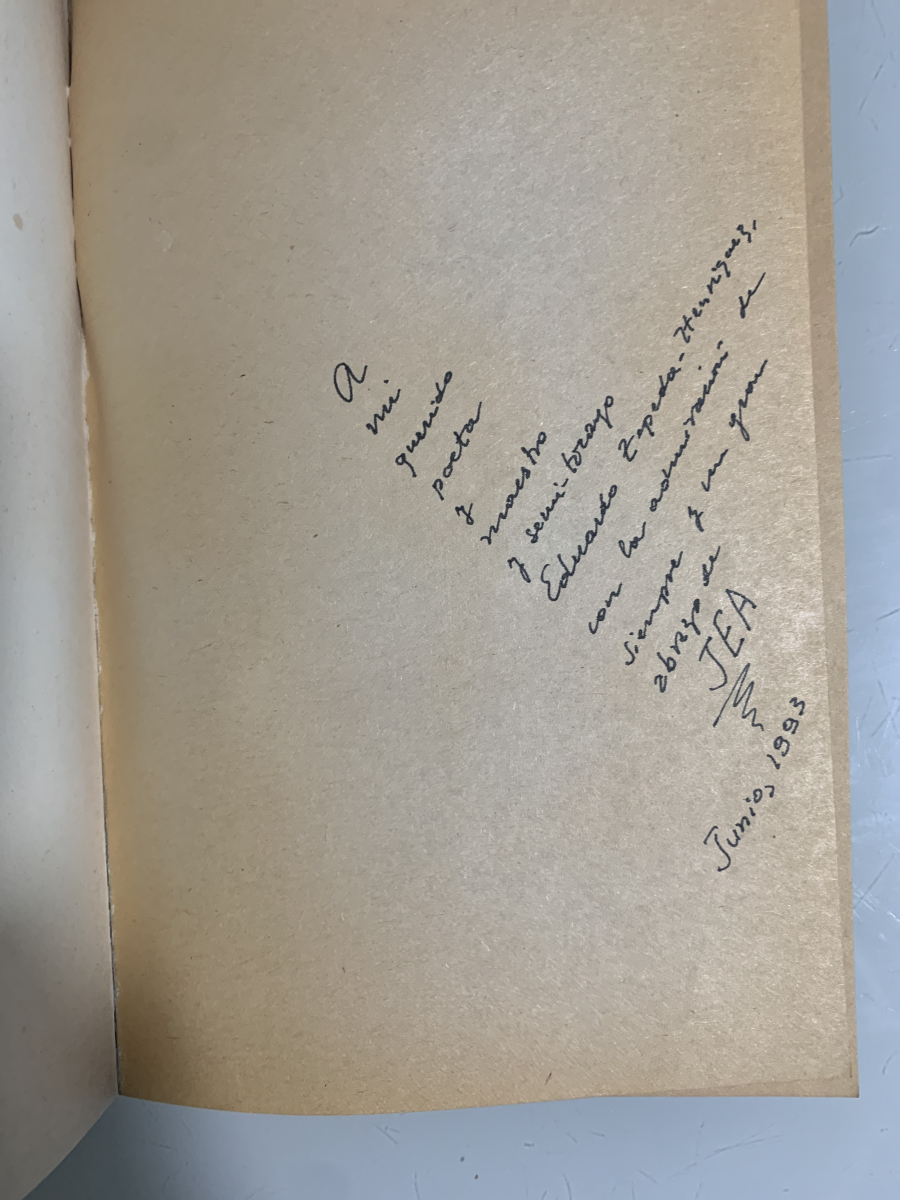 A
mi
querido
poeta
y
maestro
y semi-tocayo
Eduardo Zepeda-Henríquez,
con la admiración de
siempre y un gran
abrazo de
JEA
Junio, 1993